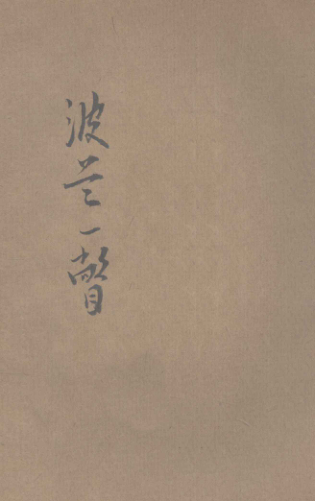 波兰一瞥